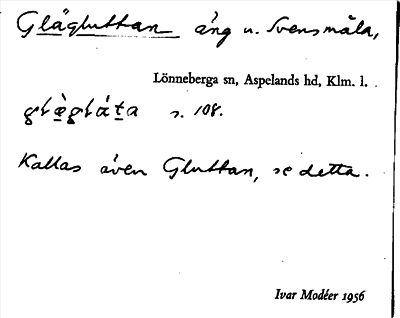 Glägluttan äng u. Svensmåla,
Lönneberga sn, Aspelands hd, Klm. l.
s. 108.
Kallas även Gluttan, se detta.
Ivar Modéer 1956